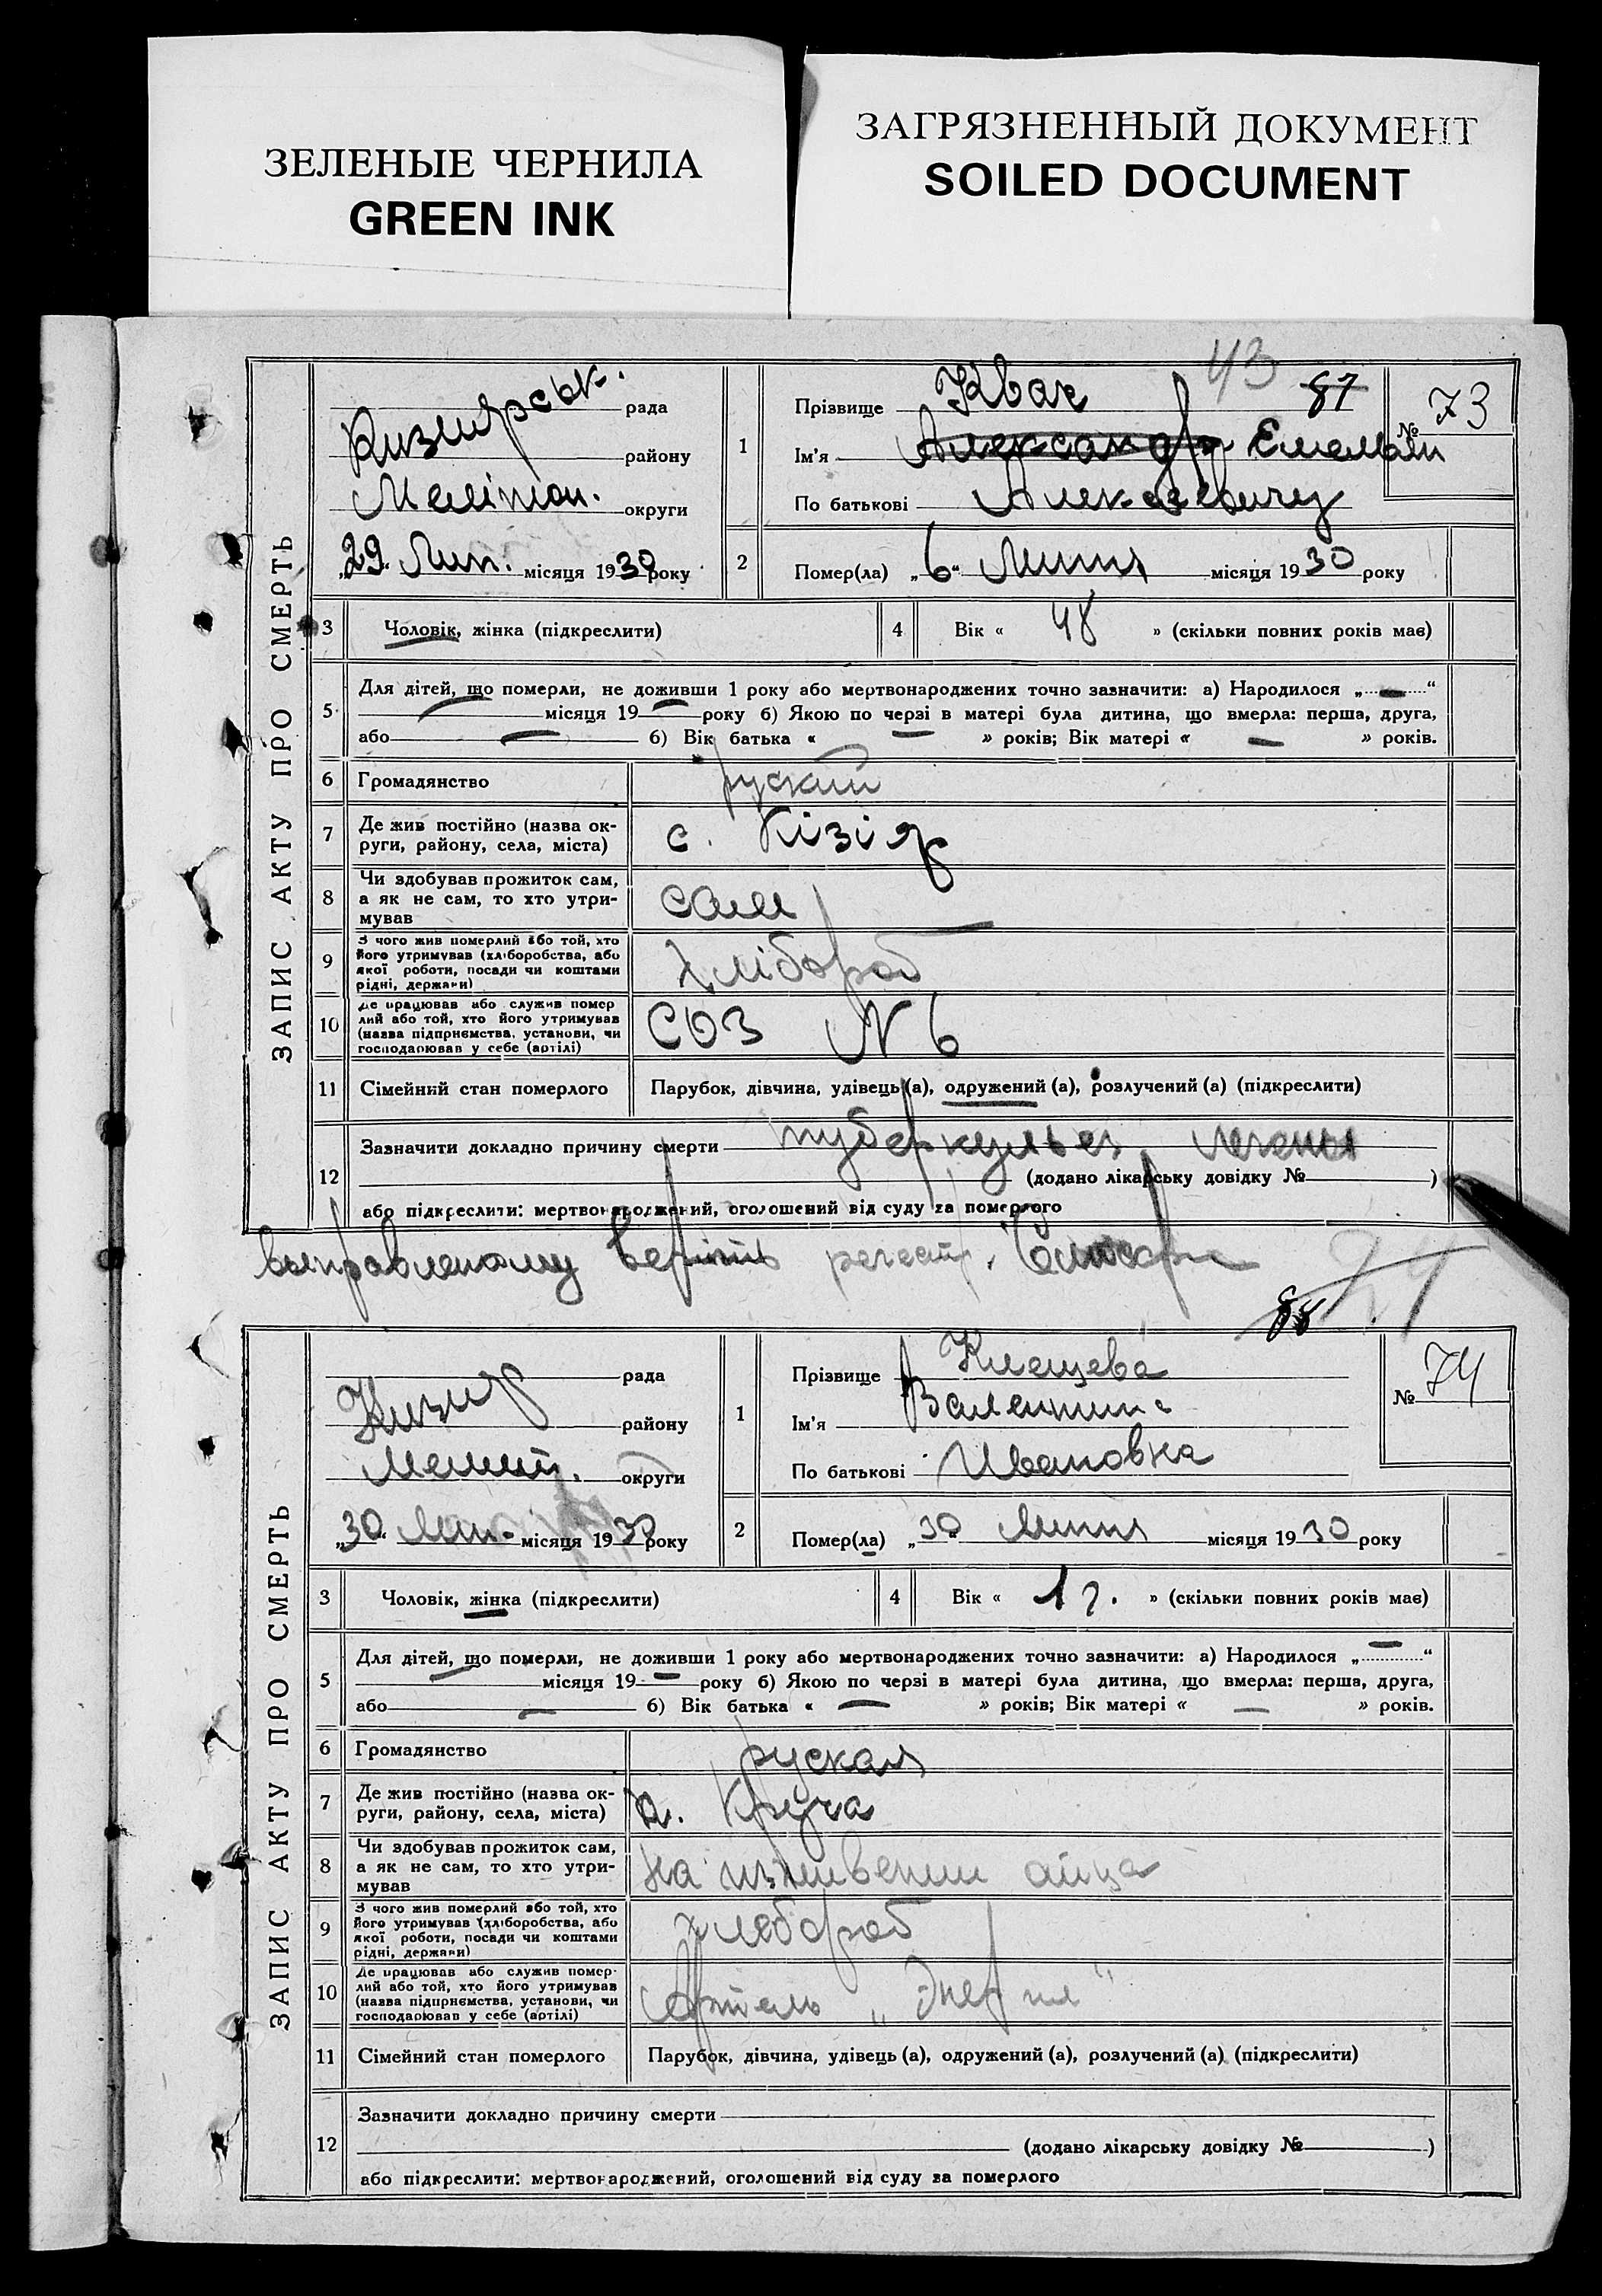 ЗЕЛЕНЫЕ ЧЕРНИЛА
GREEN INK
ЗАГРЯЗНЕННЫЙ ДОКУМЕНТ
SOILED DOCUMENT
43
ЗАПИС АКТУ ПРО СМЕРТЬ
рада
району
Меліт. округи
„29“ Лип. місяця 1930 року
1
Прізвище Квач 87
Ім'я Александр Емельян
По батькові
№ 73
2
Помер(ла) „6“ Липня місяця 1930 року
3 Чоловік, жінка (підкреслити)
4 Вік « 48 » (скільки повних років має)
5 Для дітей, що померли, не доживши 1 року або мертвонароджених точно зазначити: а) Народилося „ — “
— місяця 19 — року б) Якою по черзі в матері була дитина, що вмерла: перша, друга,
або — б) Вік батька « — » років; Вік матері « — » років.
6 Громадянство руский
7 Де жив постійно (назва ок-
руги, району, села, міста) с. Кізіяр
8 Чи здобував прожиток сам,
а як не сам, то хто утри-
мував сам
9 З чого жив померлий або той, хто
його утримував (хліборобства, або
якої роботи, посади чи коштами
рідні, держави) хлібороб
10 Де працював або служив помер
лий або той, хто його утримував
(назва підприємства, установи, чи
господарював у себе (артілі) СОЗ N 6
11 Сімейний стан померлого Парубок, дівчина, удівець (а), одружений (а), розлучений (а) (підкреслити)
12 Зазначити докладно причину смерти туберкульез легких
(додано лікарську довідку № )
або підкреслити: мертвонароджений, оголошений від суду за померлого
выправленому верить
74
88
ЗАПИС АКТУ ПРО СМЕРТЬ
рада
Кизияр району
Мелит. округи
„30“ Лип. місяця 1930 року
1
Прізвище Клещева
Ім'я Валентина
По батькові Ивановна
№ 74
2
Помер(ла) „30“ Липня місяця 1930 року
3 Чоловік, жінка (підкреслити)
4 Вік « 1 г. » (скільки повних років має)
5 Для дітей, що померли, не доживши 1 року або мертвонароджених точно зазначити: а) Народилося „ — “
— місяця 19 — року б) Якою по черзі в матері була дитина, що вмерла: перша, друга,
або — б) Вік батька « — » років; Вік матері « — » років.
6 Громадянство руская
7 Де жив постійно (назва ок-
руги, району, села, міста) х. Круча
8 Чи здобував прожиток сам,
а як не сам, то хто утри-
мував на иждивении отца
9 З чого жив померлий або той, хто
його утримував (хліборобства, або
якої роботи, посади чи коштами
рідні, держави) хлебороб
10 Де працював або служив помер-
лий або той, хто його утримував
(назва підприємства, установи, чи
господарював у себе (артілі) Артель
11 Сімейний стан померлого Парубок, дівчина, удівець (а), одружений (а), розлучений (а) (підкреслити)
12 Зазначити докладно причину смерти
(додано лікарську довідку № )
або підкреслити: мертвонароджений, оголошений від суду за померлого